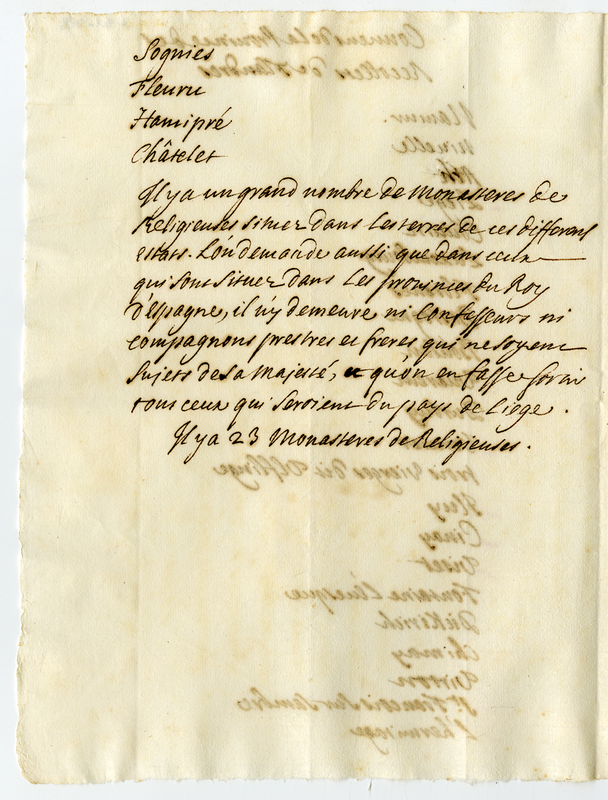 Sognies
Fleuru
Hamipré
Châtelet
Il y a un grand nombre de Monasteres de
Religieuses situez dans les terres de ces differens
estats. L'on demande aussi que dans ceux
qui sont situez dans les provinces du Roy
d'Espagne, il n'y demeure ni Confesseurs ni
compagnons prestres et freres qui ne soyent
sujets de sa Majesté, et qu'on en fasse sortir
tous ceux qui seroient du pays de Liege.
Il y a 23 Monasteres de Religieuses.